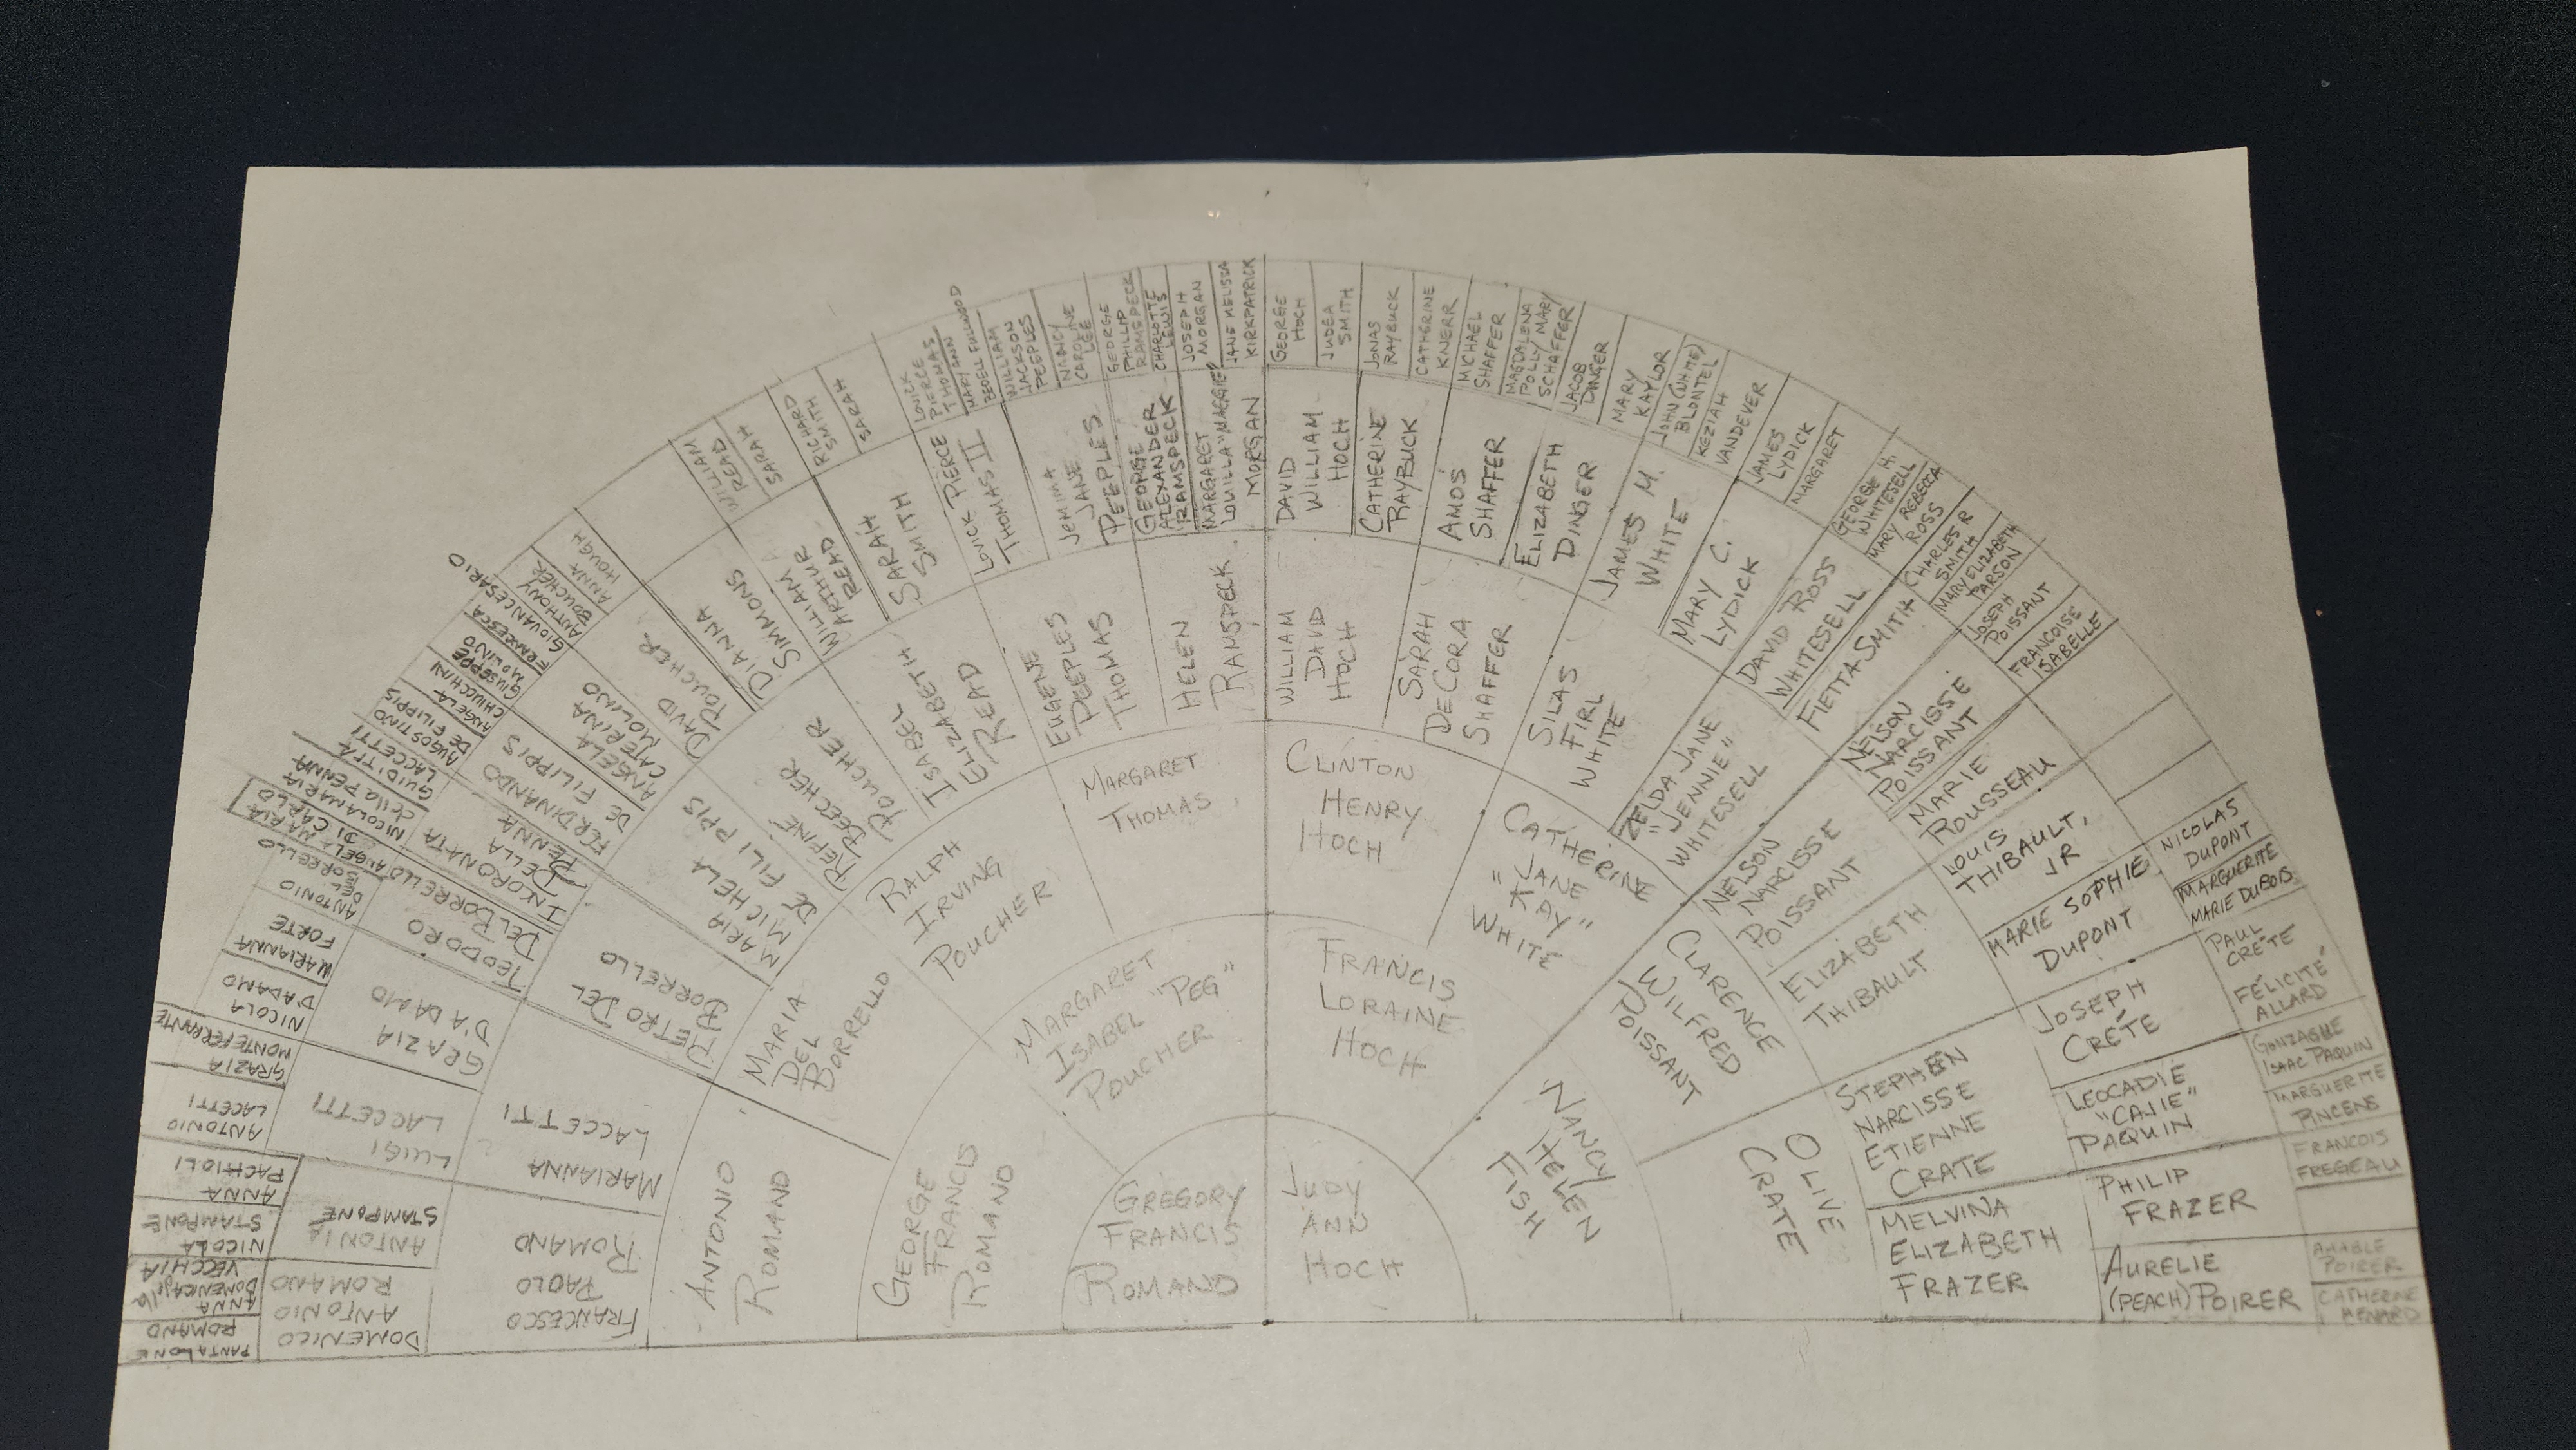 GREGORY
FRANCIS
ROMANO
JUDY
ANN
HOCH
GEORGE
FRANCIS
ROMANO
MARGARET
ISABEL "PEG"
POUCHER
FRANCIS
LORAINE
HOCH
NANCY
HELEN
FISH
ANTONIO
ROMANO
MARIA
DEL
BORRELLO
RALPH
IRVING
POUCHER
MARGARET
THOMAS
CLINTON
HENRY
HOCH
CATHERINE
JANE
"KAY"
WHITE
CLARENCE
WILFRED
POISSANT
OLIVE
CRATE
FRANCESCO
PAOLO
ROMANO
MARIANNA
LACCETTI
PIETRO DEL
BORRELLO
MARIA
MICHELA
DE FILIPPIS
REFINE
BEECHER
POUCHER
ISABEL
ELIZABETH
READ
EUGENE
PEEPLES
THOMAS
HELEN
RAMSPECK
WILLIAM
DAVID
HOCH
SARAH
DECORA
SHAFFER
SILAS
FIRL
WHITE
ZELDA JANE
"JENNIE"
WHITESELL
NELSON
NARCISSE
POISSANT
ELIZABETH
THIBAULT
STEPHEN
NARCISSE
ETIENNE
CRATE
MELVINA
ELIZABETH
FRAZER
DOMENICO
ANTONIO
ROMANO
ANTONIA
STAMPONE
LUIGI
LACCETTI
GRAZIA
D'ADAMO
TEODORO
DEL BORRELLO
INCORONATA
DELLA
PENNA
FERDINANDO
DE FILIPPIS
ANGELA
CATERINA
MOLINO
DAVID
POUCHER
DIANNA
SIMMONS
WILLIAM
ARTHUR
READ
SARAH
SMITH
LOVICK PIERCE
THOMAS II
JEMIMA
JANE
PEEPLES
GEORGE
ALEXANDER
RAMSPECK
MARGARET
LOUILLA "MAGGIE"
MORGAN
DAVID
WILLIAM
HOCH
CATHERINE
RAYBUCK
AMOS
SHAFFER
ELIZABETH
DINGER
JAMES M.
WHITE
MARY C.
LYDICK
DAVID ROSS
WHITESELL
FIETTA SMITH
NELSON
NARCISSE
POISSANT
MARIE
ROUSSEAU
LOUIS
THIBAULT,
JR
MARIE SOPHIE
DUPONT
JOSEPH
CRÉTE
LEOCADIE
"CAJIE"
PAQUIN
PHILIP
FRAZER
AURELIE
(PEACH) POIRER
PANTALONE
ROMANO
ANNA
DOMENICA
VECCHIA
NICOLA
STAMPONE
ANNA
PACHIOLI
ANTONIO
LACETTI
GRAZIA
MONTEFERRANTE
NICOLA
D'ADAMO
MARIANNA
FORTE
ANTONIO
DEL
BORRELLO
MARIA
ANGELA
DI CARLO
NICOLAMARIA
della PENNA
GUIDITTA
LACCETTI
AUGOSTINO
DE FILIPPIS
ANGELA
CHIUCCHINI
GIUSEPPE
MOLINO
FRANCESCA
GIOVANCESARIO
ANTHONY
BOUCHER
ANNA
HOUGH
WILLIAM
READ
SARAH
RICHARD
SMITH
SARAH
LOVICK
PIERCE
THOMAS
MARY ANN
BEDELL FULLWOOD
WILLIAM
JACKSON
PEEPLES
NANCY
CAROLINE
LEE
GEORGE
PHILLIP
RAMSPECK
CHARLOTTE
LEWIS
JOSEPH
MORGAN
JANE MELISSA
KIRKPATRICK
GEORGE
HOCH
JUDEA
SMITH
JONAS
RAYBUCK
CATHERINE
KNERR
MICHAEL
SHAFFER
MAGDALENA
POLLY/MARY
SCHAFFER
JACOB
DINGER
MARY
KAYLOR
JOHN (WHITE)
BLONTEL
KEZIAH
VANDEVER
JAMES
LYDICK
MARGARET
GEORGE H.
WHITESELL
MARY REBECCA
ROSS
CHARLES R
SMITH
MARY ELIZABETH
PARSON
JOSEPH
POISSANT
FRANCOISE
ISABELLE
NICOLAS
DUPONT
MARGUERITE
MARIE DUBOIS
PAUL
CRÊTE
FÉLICITÉ
ALLARD
GONZAGUE
ISAAC PAQUIN
MARGUERITE
PINCENS
FRANCOIS
FREGEAU
AMABLE
POIRER
CATHERINE
MENARD